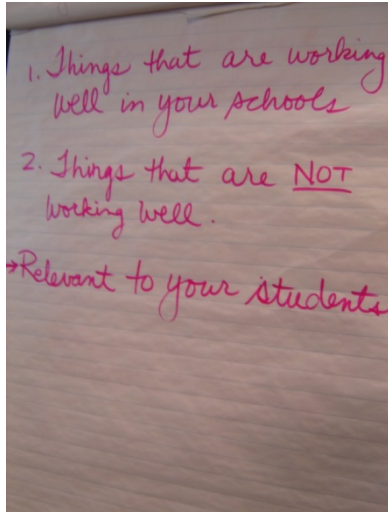 1. Things that are working
well in your schools
2. Things that are NOT
working well.
→Relevant to your students